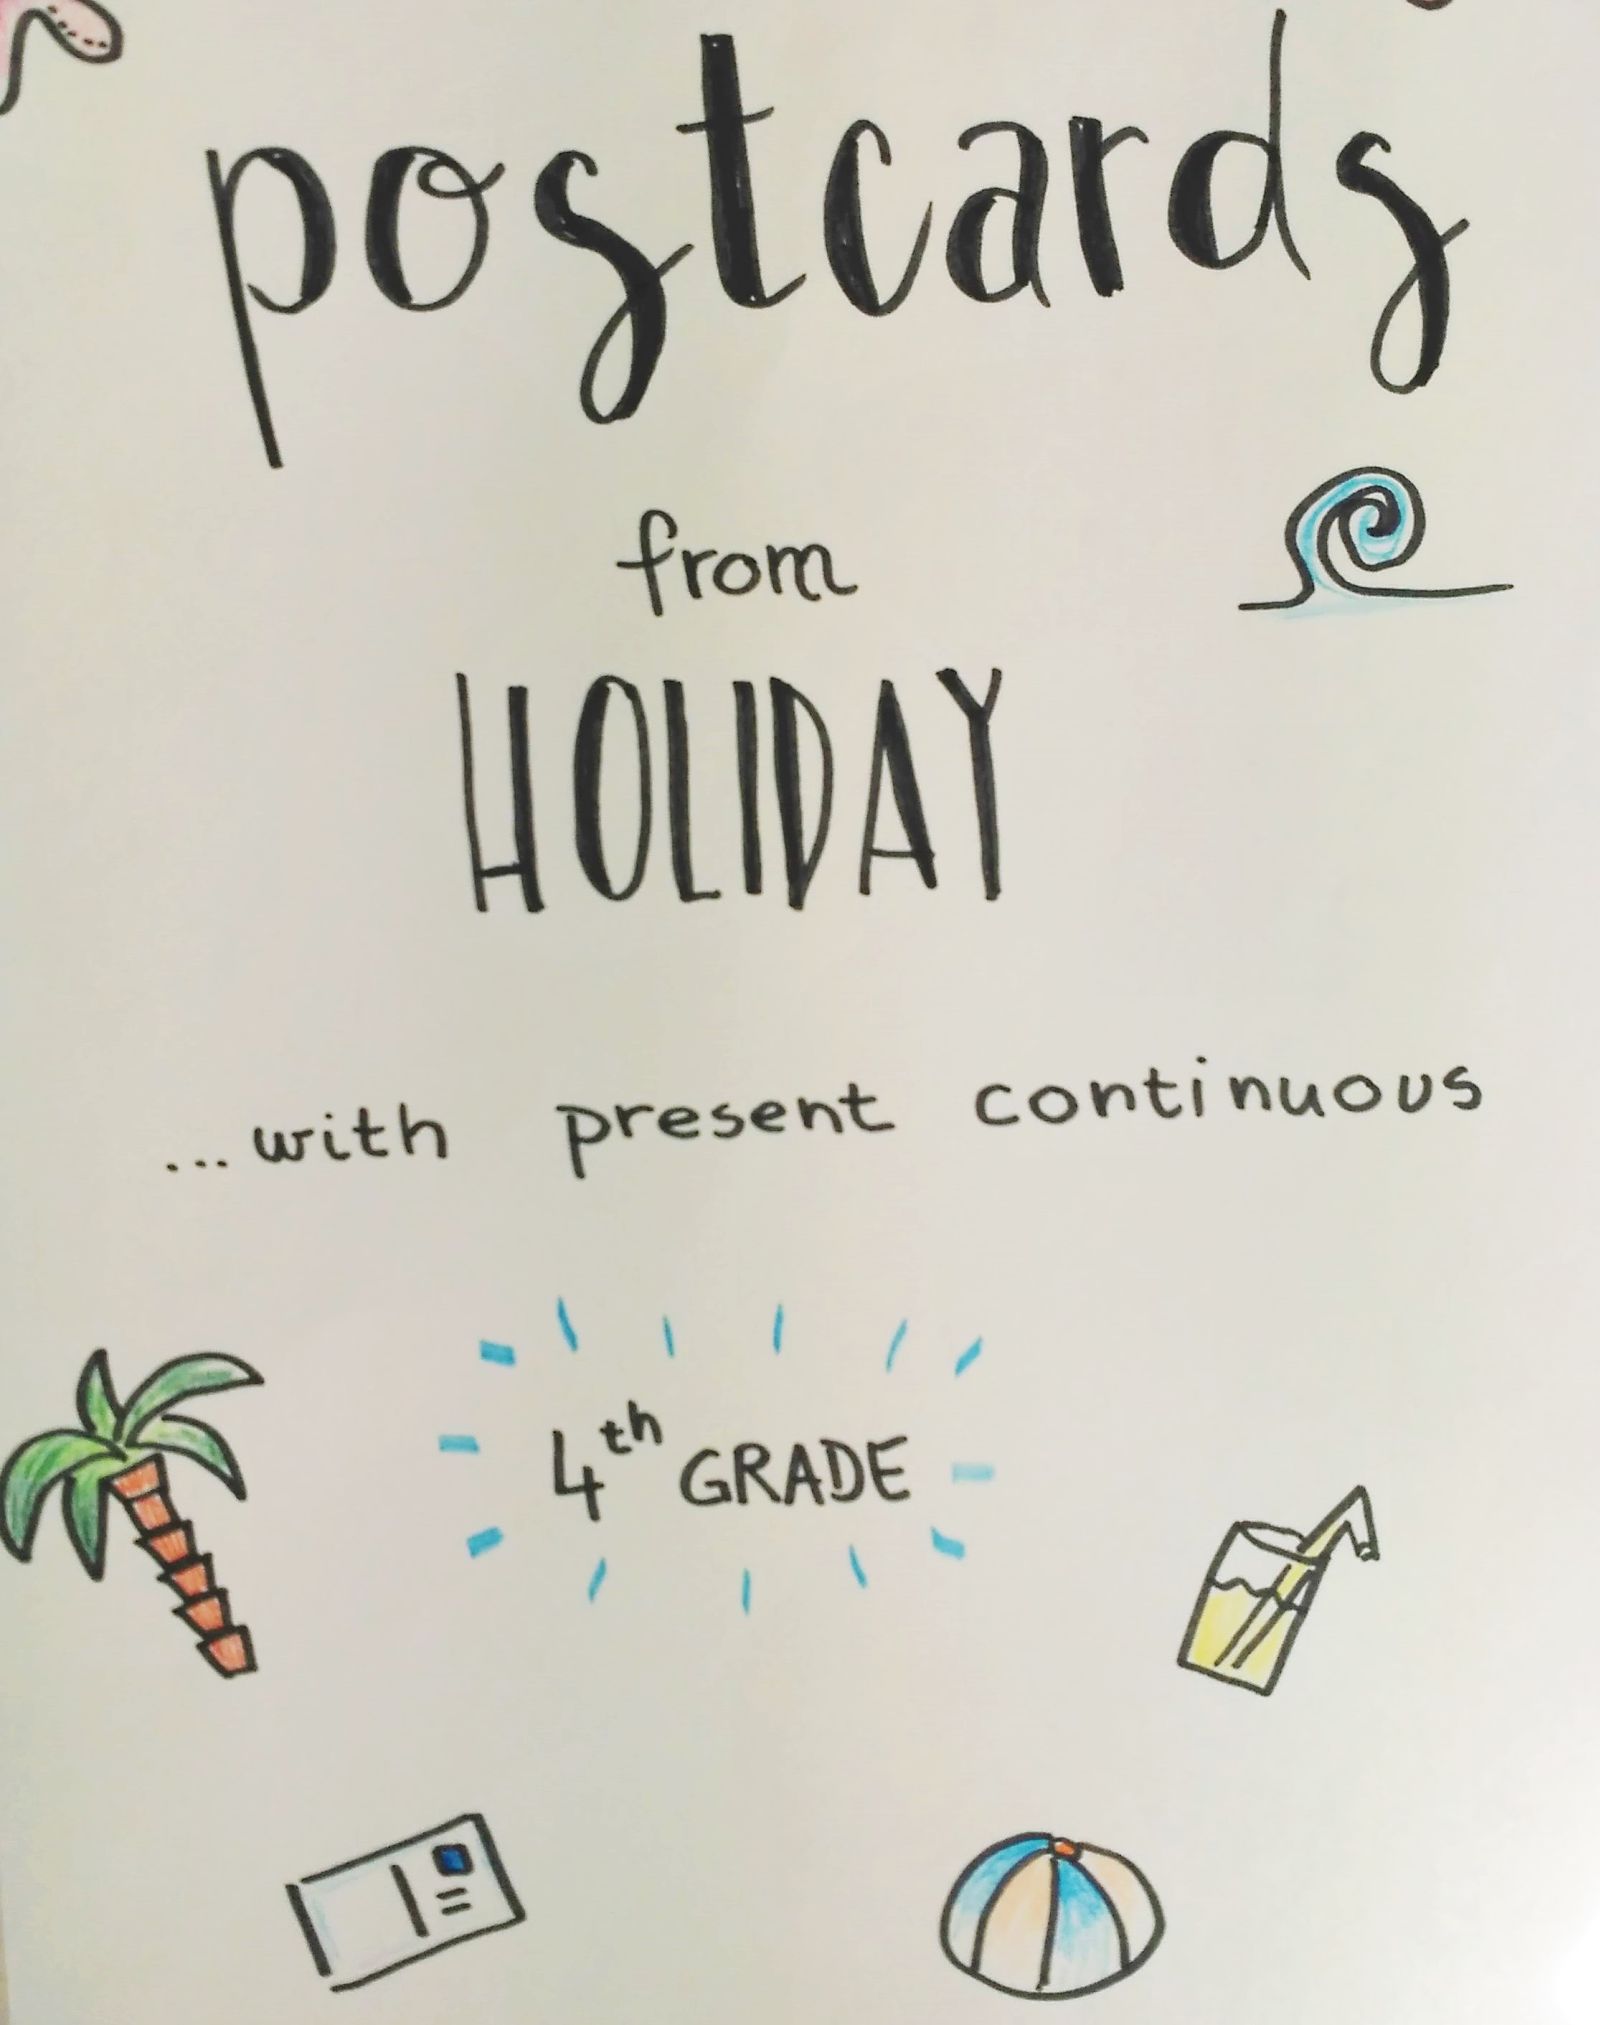 postcards
from
HOLIDAY
...with present continuous
4th GRADE